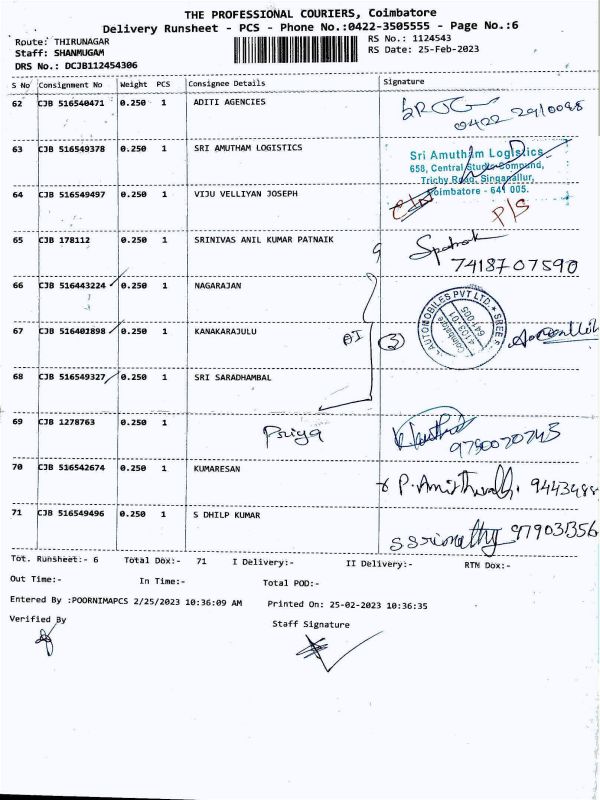 THE PROFESSIONAL COURIERS, Coimbatore
Delivery Runsheet - PCS - Phone No.:0422-3505555 - Page No.:6
Route: THIRUNAGAR
RS No.: 1124543
Staff: SHANMUGAM
RS Date: 25-Feb-2023
DRS No.: DCJB112454306
S No Consignment No Weight PCS Consignee Details Signature
62 CJB 516540471 0.250 1 ADITI AGENCIES
0422 2910098
63 CJB 516549378 0.250 1 SRI AMUTHAM LOGISTICS
Sri Amutham Logistics
658, Central Studio Compund,
Trichy Road, Singanallur,
Coimbatore - 641 005.
64 CJB 516549497 0.250 1 VIJU VELLIYAN JOSEPH
P/S
65 CJB 178112 0.250 1 SRINIVAS ANIL KUMAR PATNAIK
7418707590
66 CJB 516443224 0.250 1 NAGARAJAN
AUTOMOBILES PVT LTD. * SREE
Coimbatore
641 005
67 CJB 516401898 0.250 1 KANAKARAJULU
3
68 CJB 516549327 0.250 1 SRI SARADHAMBAL
69 CJB 1278763 0.250 1
Priya
70 CJB 516542674 0.250 1 KUMARESAN
9443488
71 CJB 516549496 0.250 1 S DHILP KUMAR
Tot. Runsheet:- 6 Total Dox:- 71 I Delivery:- II Delivery:- RTN Dox:-
Out Time:- In Time:- Total POD:-
Entered By :POORNIMAPCS 2/25/2023 10:36:09 AM Printed On: 25-02-2023 10:36:35
Verified By
Staff Signature